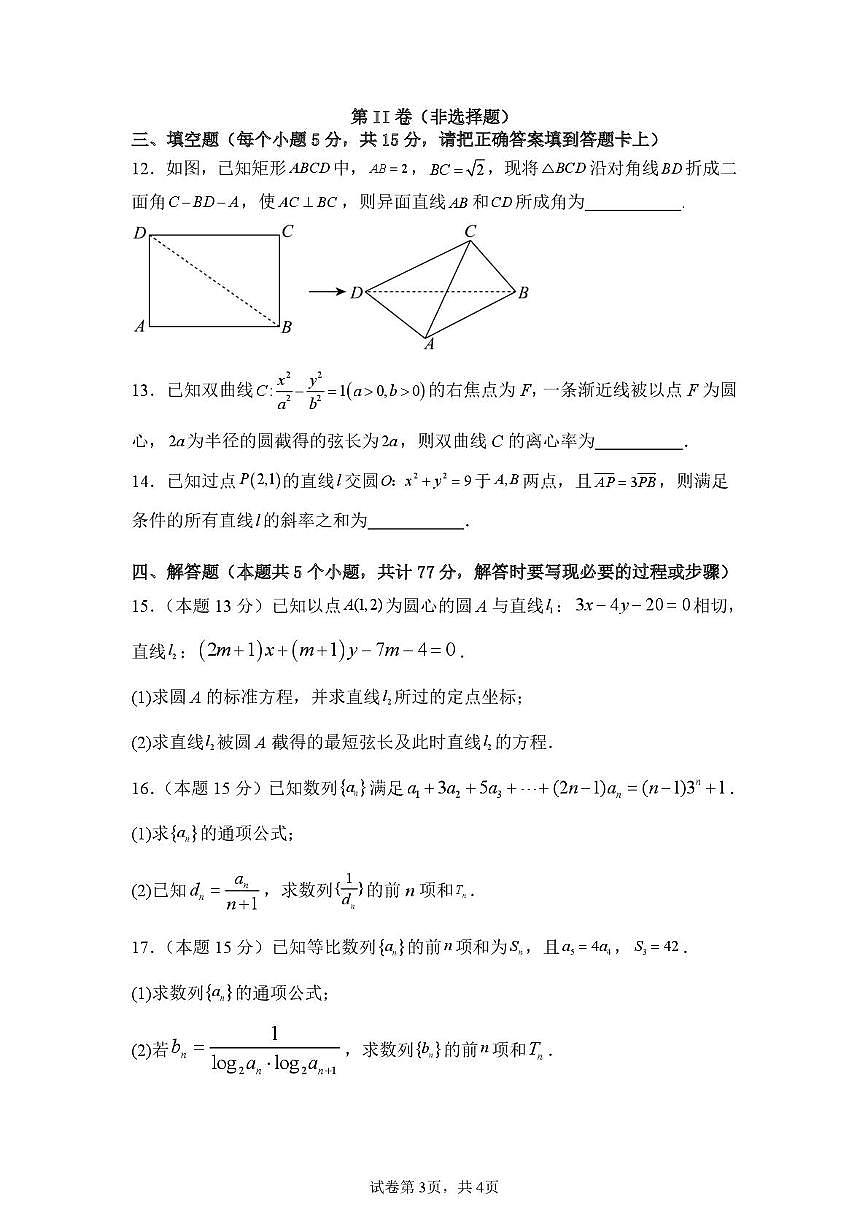 第 II 卷（非选择题）
三、填空题（每个小题 5 分，共 15 分，请把正确答案填到答题卡上）
12．如图，已知矩形 ABCD 中，AB = 2，BC = √2，现将 △BCD 沿对角线 BD 折成二
面角 C－BD－A，使 AC ⊥ BC，则异面直线 AB 和 CD 所成角为____________.
D C C
D B
A B
A
13．已知双曲线 C: x²/a² − y²/b² = 1(a > 0, b > 0) 的右焦点为 F，一条渐近线被以点 F 为圆
心，2a 为半径的圆截得的弦长为 2a，则双曲线 C 的离心率为___________．
14．已知过点 P(2,1) 的直线 l 交圆 O: x² + y² = 9 于 A, B 两点，且 AP = 3PB，则满足
条件的所有直线 l 的斜率之和为____________．
四、解答题（本题共 5 个小题，共计 77 分，解答时要写现必要的过程或步骤）
15．（本题 13 分）已知以点 A(1,2) 为圆心的圆 A 与直线 l₁：3x − 4y − 20 = 0 相切，
直线 l₂：(2m+1)x + (m+1)y − 7m − 4 = 0．
(1)求圆 A 的标准方程，并求直线 l₂ 所过的定点坐标；
(2)求直线 l₂ 被圆 A 截得的最短弦长及此时直线 l₂ 的方程．
16．（本题 15 分）已知数列{aₙ}满足 a₁ + 3a₂ + 5a₃ + ⋯ + (2n−1)aₙ = (n−1)3ⁿ + 1．
(1)求{aₙ}的通项公式；
(2)已知 dₙ = aₙ/(n+1)，求数列{1/dₙ}的前 n 项和 Tₙ．
17．（本题 15 分）已知等比数列{aₙ}的前 n 项和为 Sₙ，且 a₅ = 4a₄，S₃ = 42．
(1)求数列{aₙ}的通项公式；
(2)若 bₙ = 1/(log₂aₙ · log₂aₙ₊₁)，求数列{bₙ}的前 n 项和 Tₙ．
试卷第 3页，共 4页